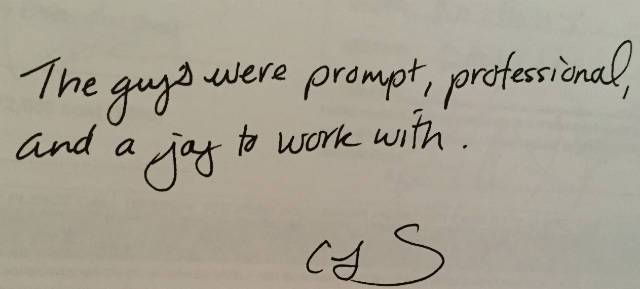 The guys were prompt, professional,
and a joy to work with.